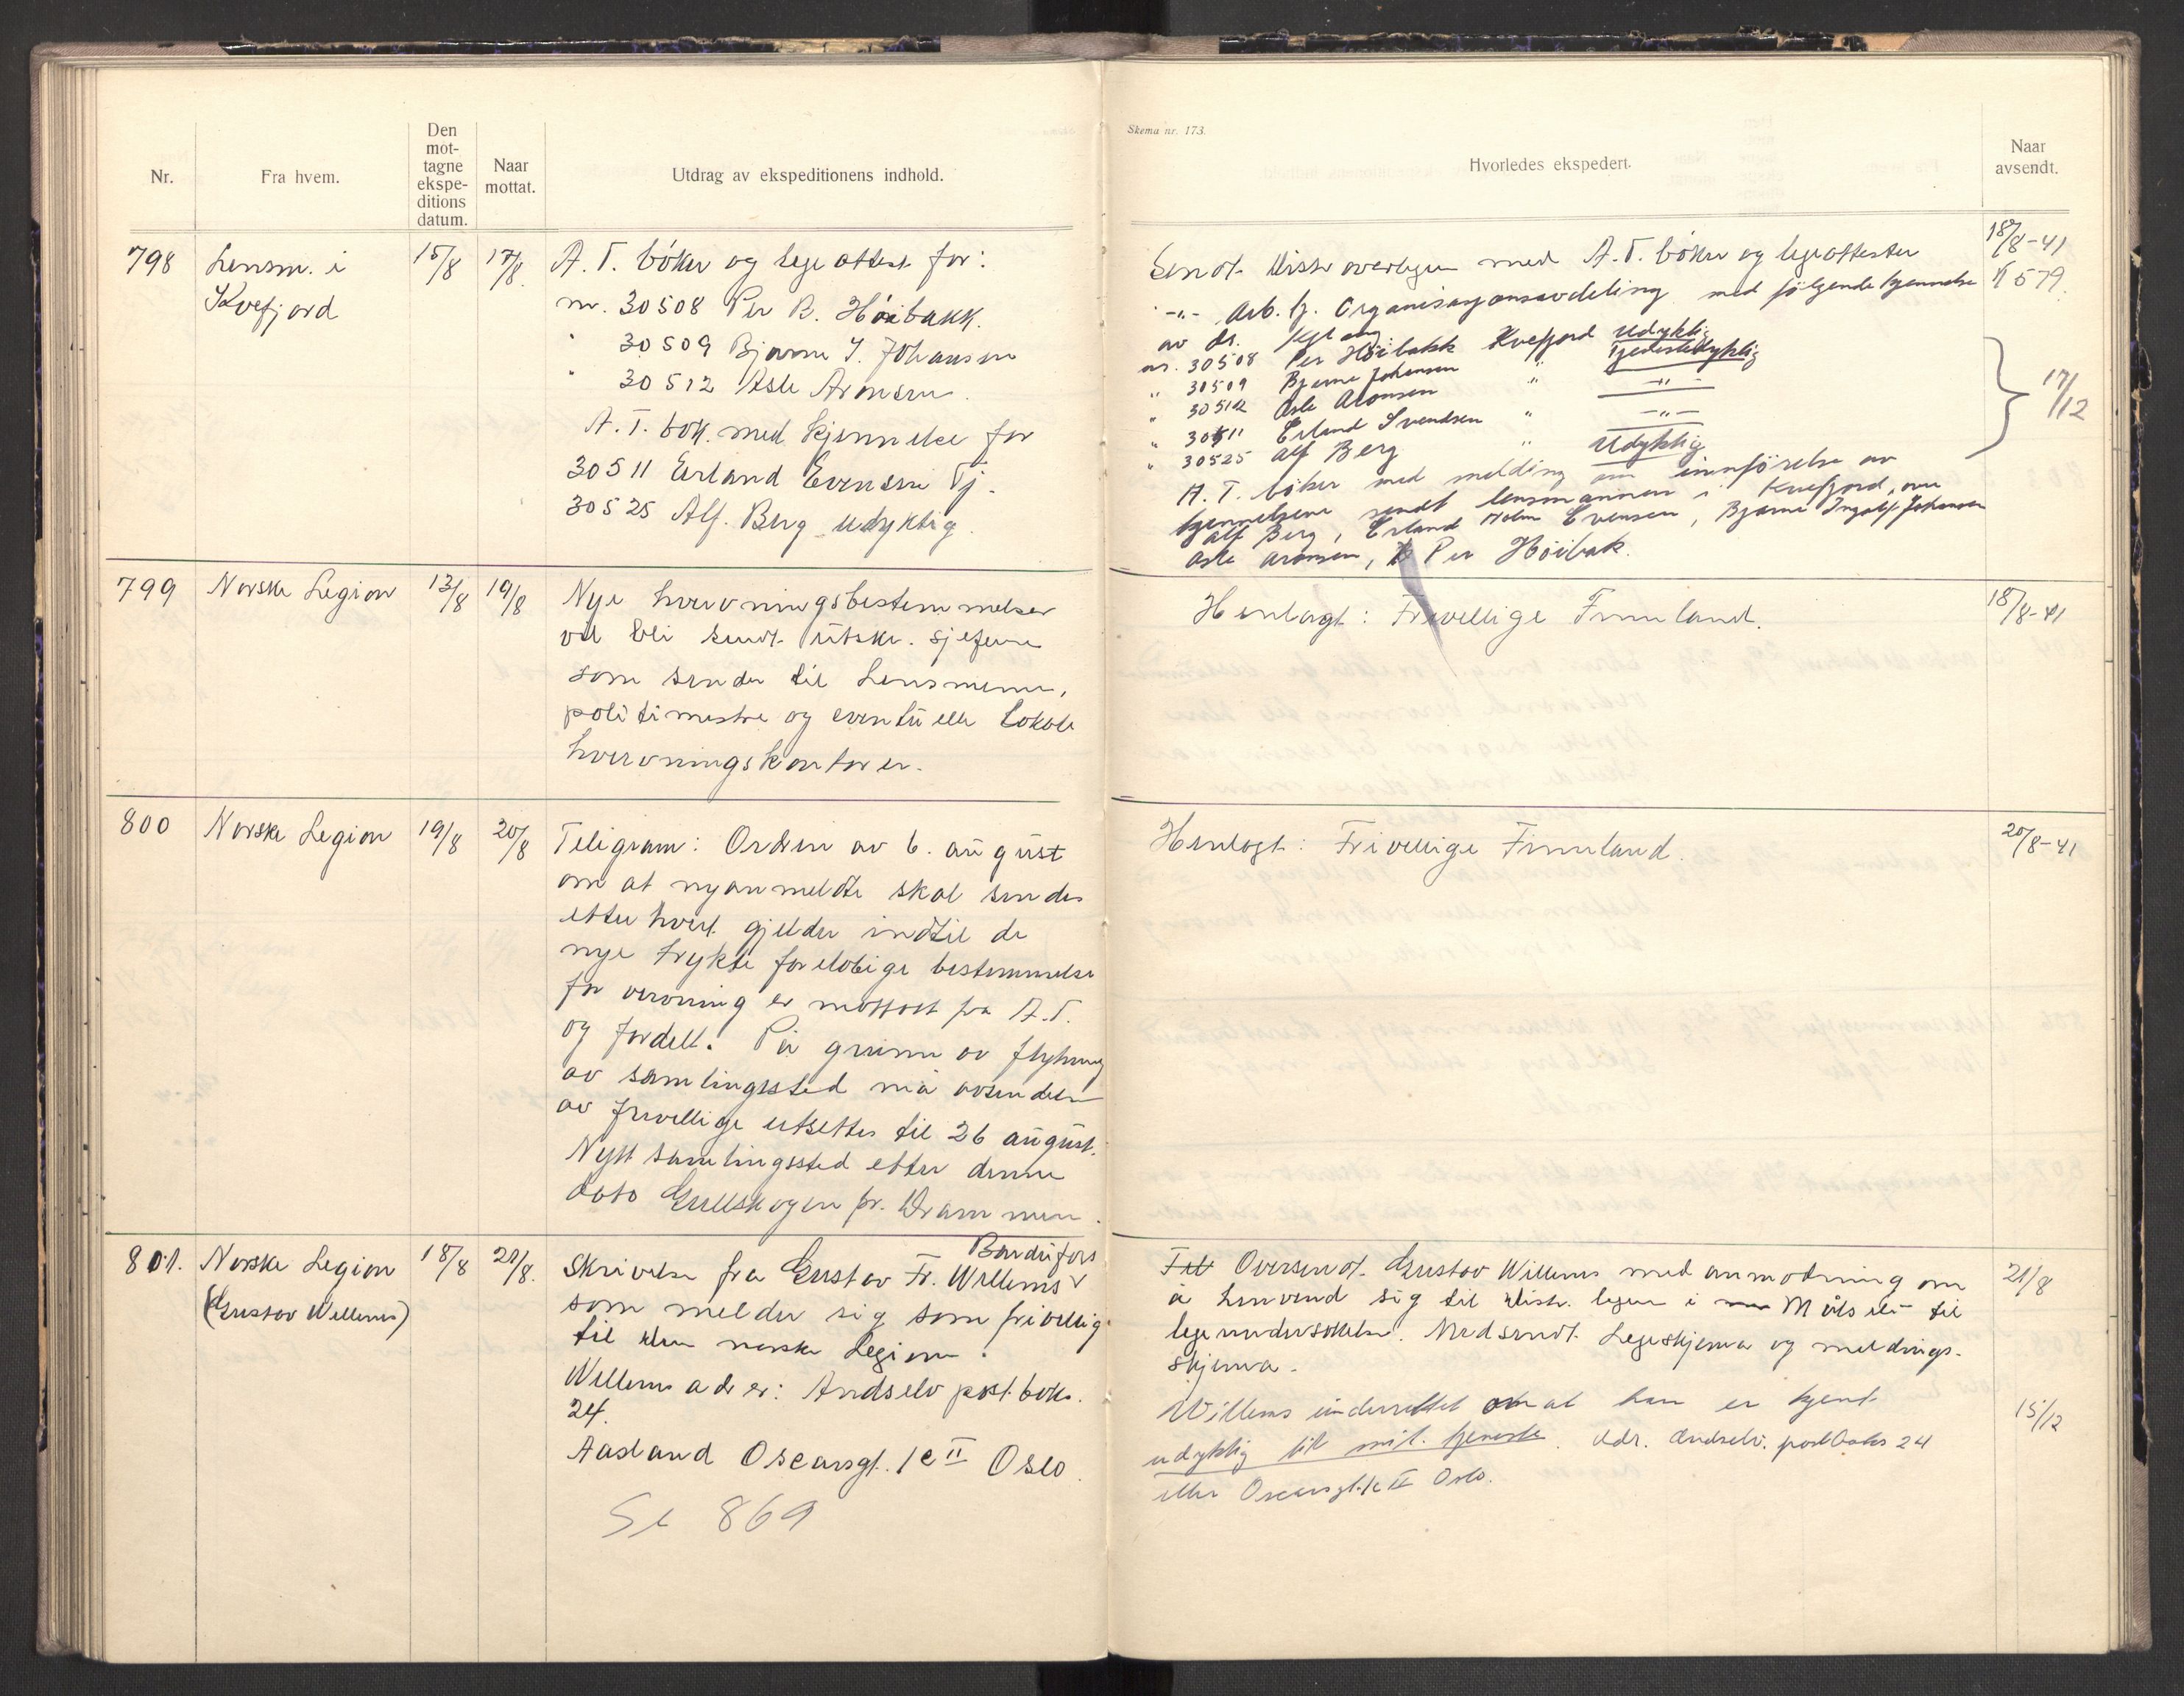 Nr.
Fra hvem.
Den
mot-
tagne
ekspe-
ditions
datum.
Naar
mottat.
Utdrag av ekspeditionens indhold.
798
Lensm. i
Kvefjord
15/8
17/8.
A. T. bøker og lege attest for:
nr. 30508 Per R. Höibakk.
" 30509 Bjarne I. Johansen
" 30512 Asle Aronsen.
A. T. bok. med kjennelse for
30511 Erland Evensen Tj.
30525 Alf. Berg udyktig.
799
Norske Legion
13/8
19/8
Nye hvervningsbestemmelser
vil bli sendt utskr. sjefene
som sender til Lensmenn,
politimestre og eventuelle lokale
hvervningskontorer.
800
Norske Legion
19/8
20/8
Teligram: Ordren av 6. august
om at nyanmeldte skal sendes
etter hvert gjelder indtil de
nye trykte foreløbige bestemmelse
for verving er mottatt fra A.T.
og fordelt. På grunn av flytning
av samlingssted må avsendelsen
av frivellige utsettes til 26 august.
Nytt samlingssted etter denne
dato Gullskogen pr. Drammen.
801.
Norske Legion
(Gustav Willems)
18/8
21/8.
Bardufoss
Skrivelse fra Gustav Fr. Willems
som melder sig som frivellig
til den norske Legion.
Willems adr er: Andselv post boks.
24.
Aasland Oscarsgt. 1c II Oslo.
Se 869
Skema nr. 173.
Hvorledes ekspedert.
Naar
avsendt.
Sendt Distr overlegen med A.T. bøker og legeattester
-"- Arb. tj. Organisasjonsavdeling med følgende kjennelse
av dr.
nr. 30508 Per Höibakk Kvefjord Udyktig
" 30509 Bjarne Johansen " Tjenestedyktig
" 30512 Asle Aronsen " -"-
" 30511 Erland Svendsen " -"-
" 30525 Alf Berg " Udyktig
18/8-41
579.
17/12
A. T. bøker med melding om innførelse av
kjennelsene sendt lensmannen i Kvefjord, over
Alf Berg, Erland Holm Evensen, Bjarne Ingolf Johansen
Asle Aronsen, Per Höibak.
Henlagt: Frivellige Finnland.
18/8-41
Henlagt: Frivellige Finnland.
20/8-41
Til Oversendt Gustav Willems med anmodning om
å henvend sig til distr. legen i Målselv til
legeundersøkelse. Medsendt Legeskjema og meldings-
skjema.
21/8
Willems underrettet om at han er kjent
udyktig til mil. tjeneste. Adr. Andselv. postboks 24
eller Oscarsgt. 1c II Oslo.
15/12